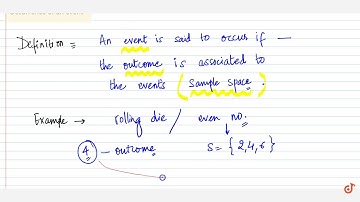 Definition :- An event is said to occur if —
the outcome is associated to
the events ( sample space .
Example → rolling die / even no.
4 — outcome S = { 2, 4, 6 }